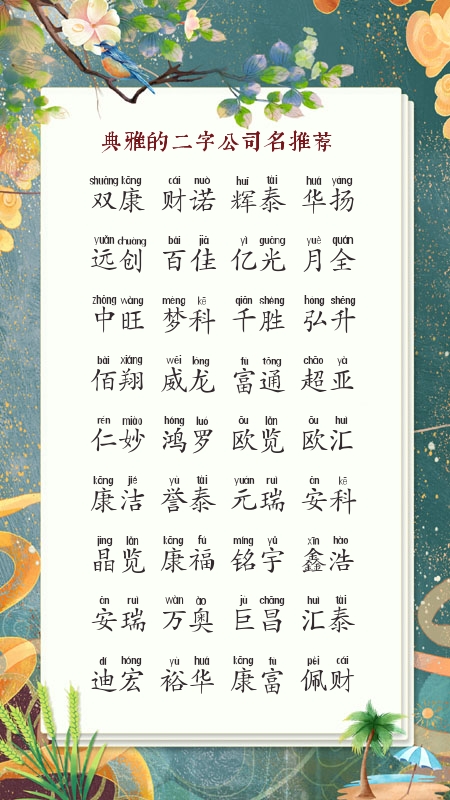 典雅的二字公司名推荐
shuāng kāng cái nuò huī tài huá yáng
双康 财诺 辉泰 华扬
yuǎn chuàng bǎi jiā yì guāng yuè quán
远创 百佳 亿光 月全
zhōng wàng mèng kē qiān shèng hóng shēng
中旺 梦科 千胜 弘升
bǎi xiáng wēi lóng fù tōng chāo yà
佰翔 威龙 富通 超亚
rén miào hóng luó ōu lǎn ōu huì
仁妙 鸿罗 欧览 欧汇
kāng jié yù tài yuán ruì ān kē
康洁 誉泰 元瑞 安科
jīng lǎn kāng fú míng yǔ xīn hào
晶览 康福 铭宇 鑫浩
ān ruì wàn ào jù chāng huì tài
安瑞 万奥 巨昌 汇泰
dí hóng yù huá kāng fù pèi cái
迪宏 裕华 康富 佩财